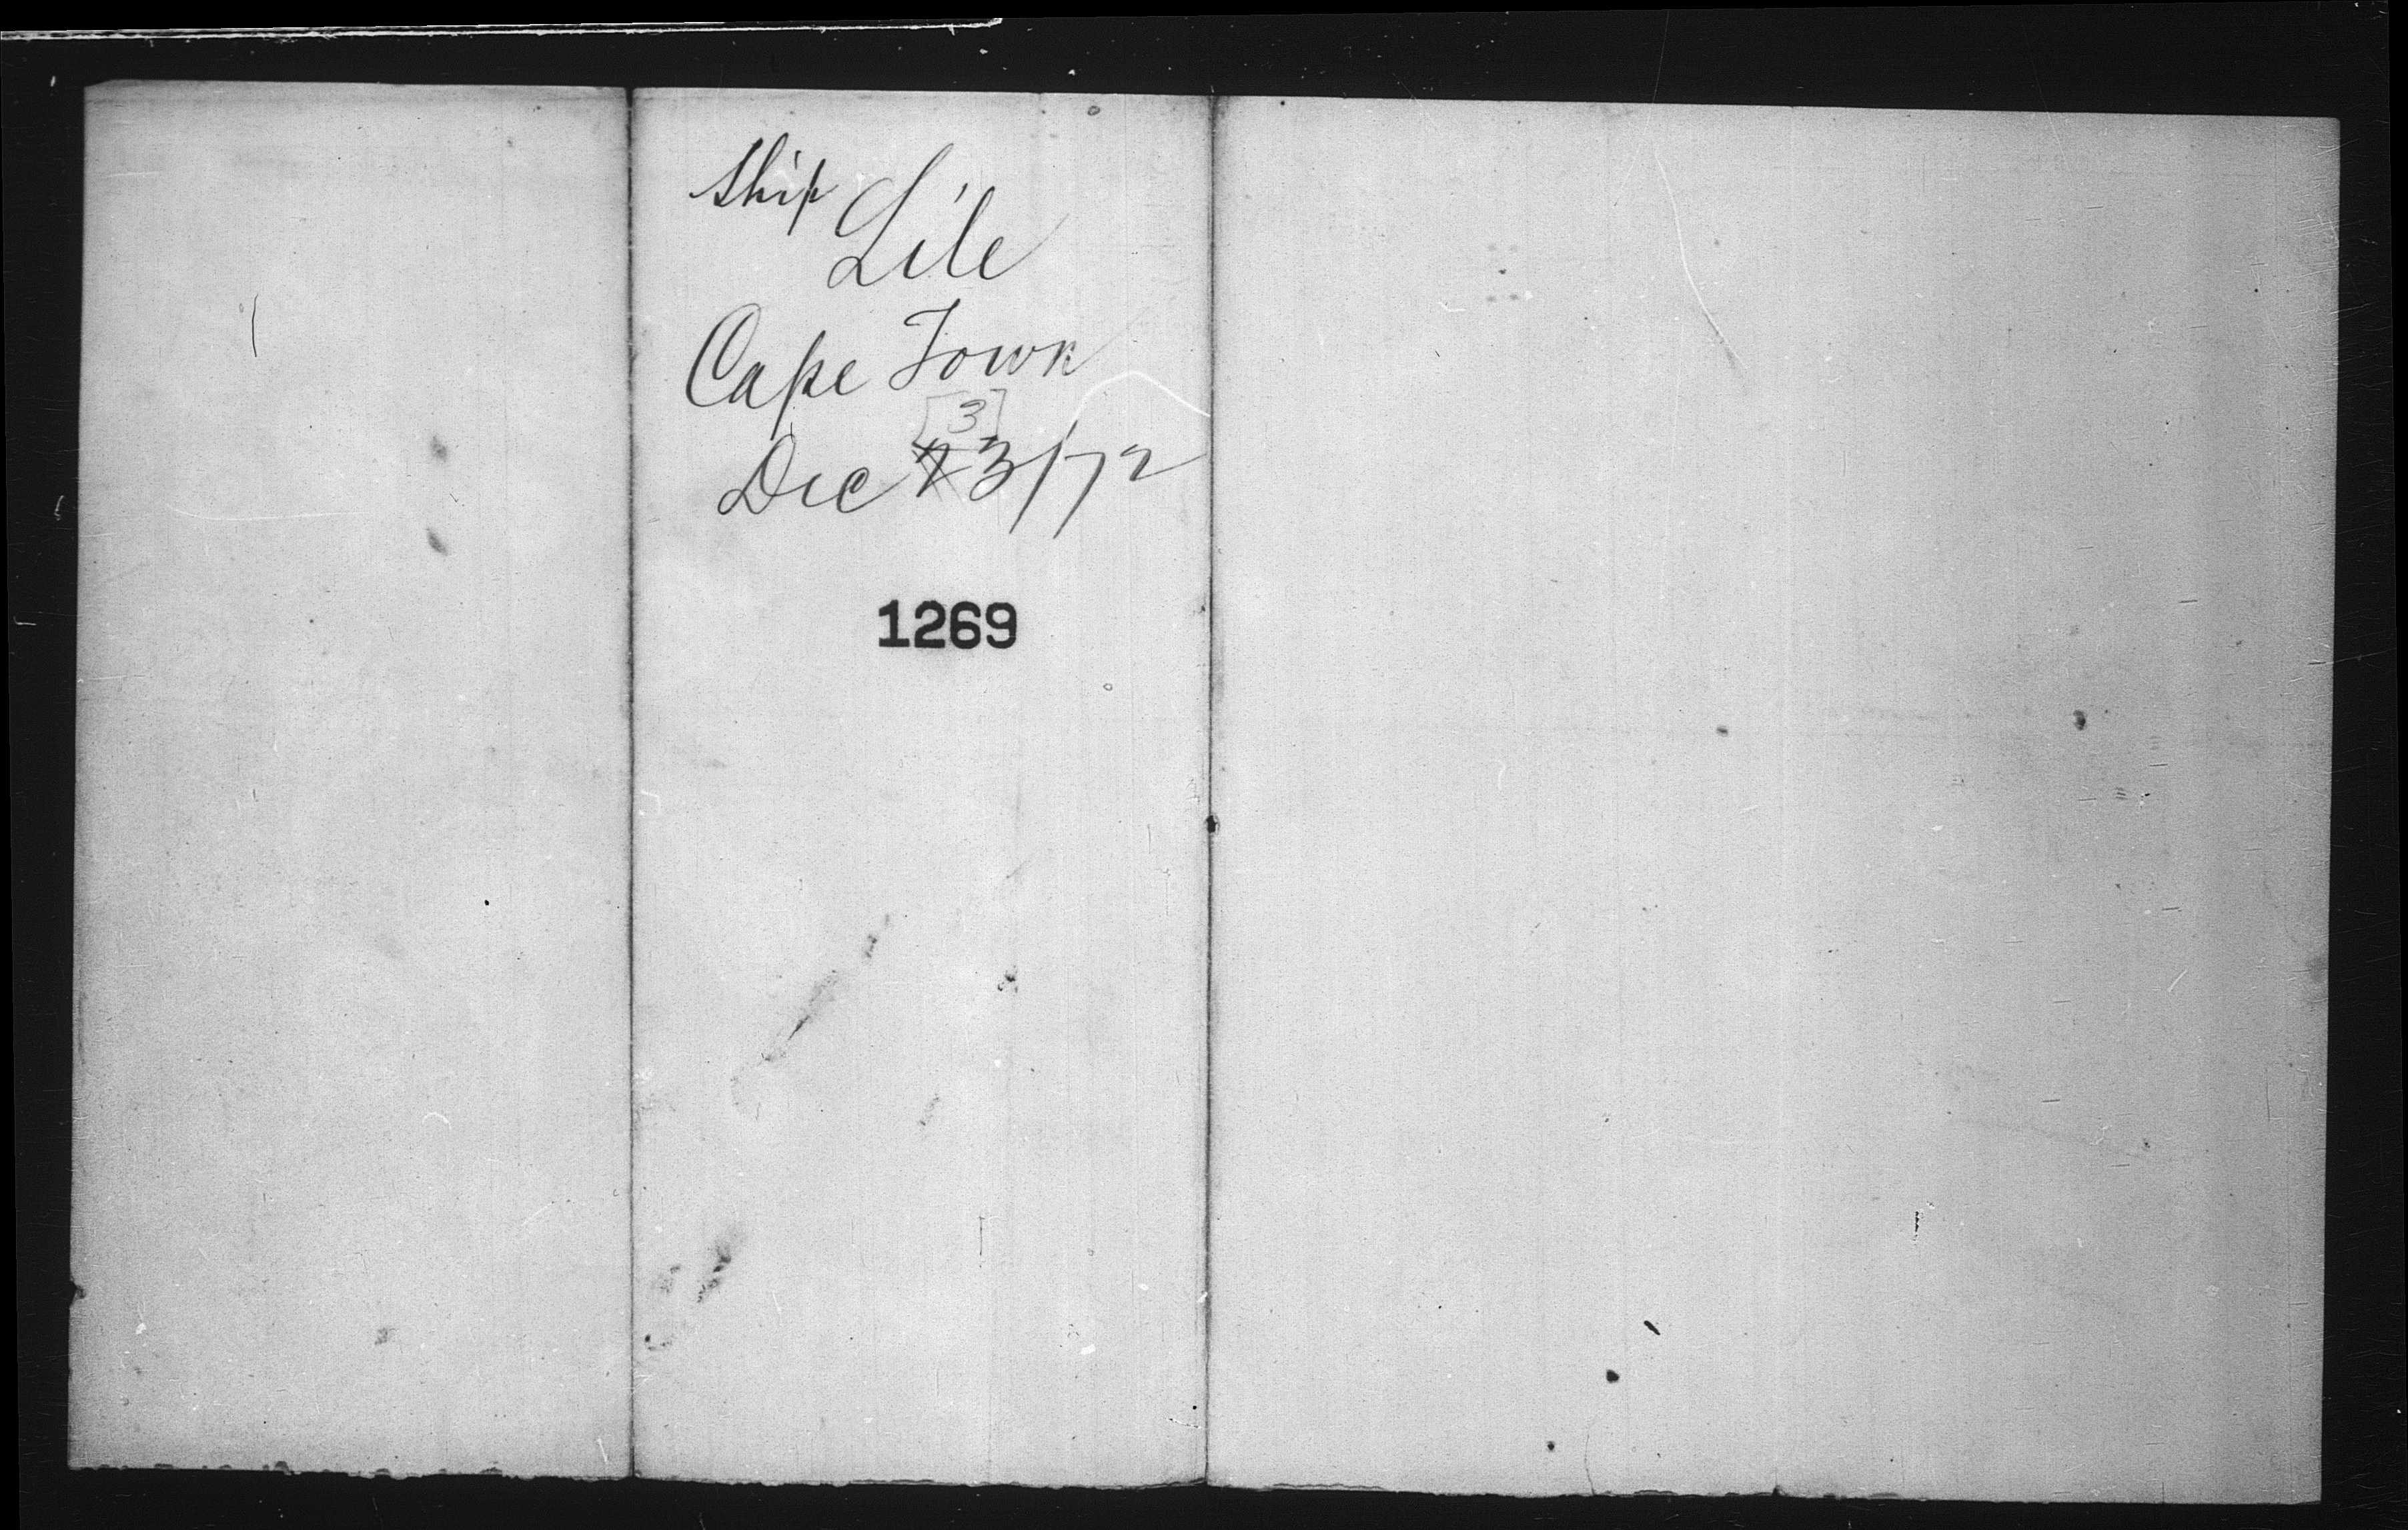 Ship
Lile
Cape Town
[3]
Dec 23/72
1269